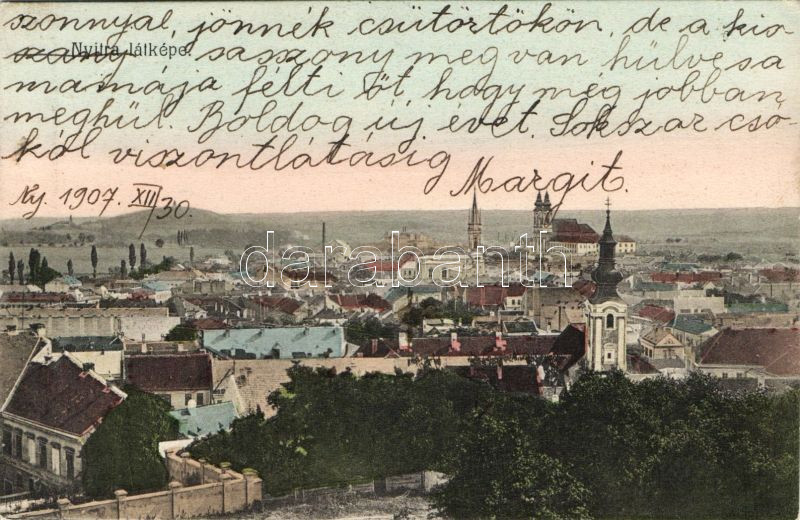 szonnyal, jönnék csütörtökön, de a kis
Nyitra látképe.
szany saszony meg van hülve s a
mamája félti őt hogy még jobban
meghül. Boldog új évet. Sokszor csó-
kol viszontlátásig
Margit.
Ny. 1907. XII/30.
darabanth